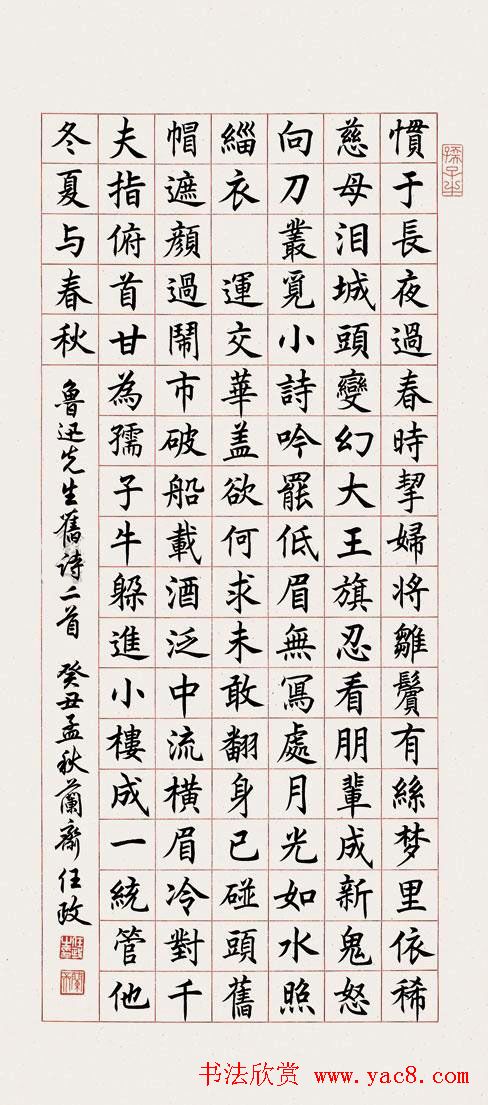 慣于長夜過春時挈婦将雛鬢有絲梦里依稀
慈母泪城頭變幻大王旗忍看朋輩成新鬼怒
向刀叢覓小詩吟罷低眉無寫處月光如水照
緇衣 運交華盖欲何求未敢翻身已碰頭舊
帽遮顔過鬧市破船載酒泛中流橫眉冷對千
夫指俯首甘為孺子牛躲進小樓成一統管他
冬夏与春秋 魯迅先生舊詩二首 癸丑孟秋蘭齋任政
书法欣赏 www.yac8.com